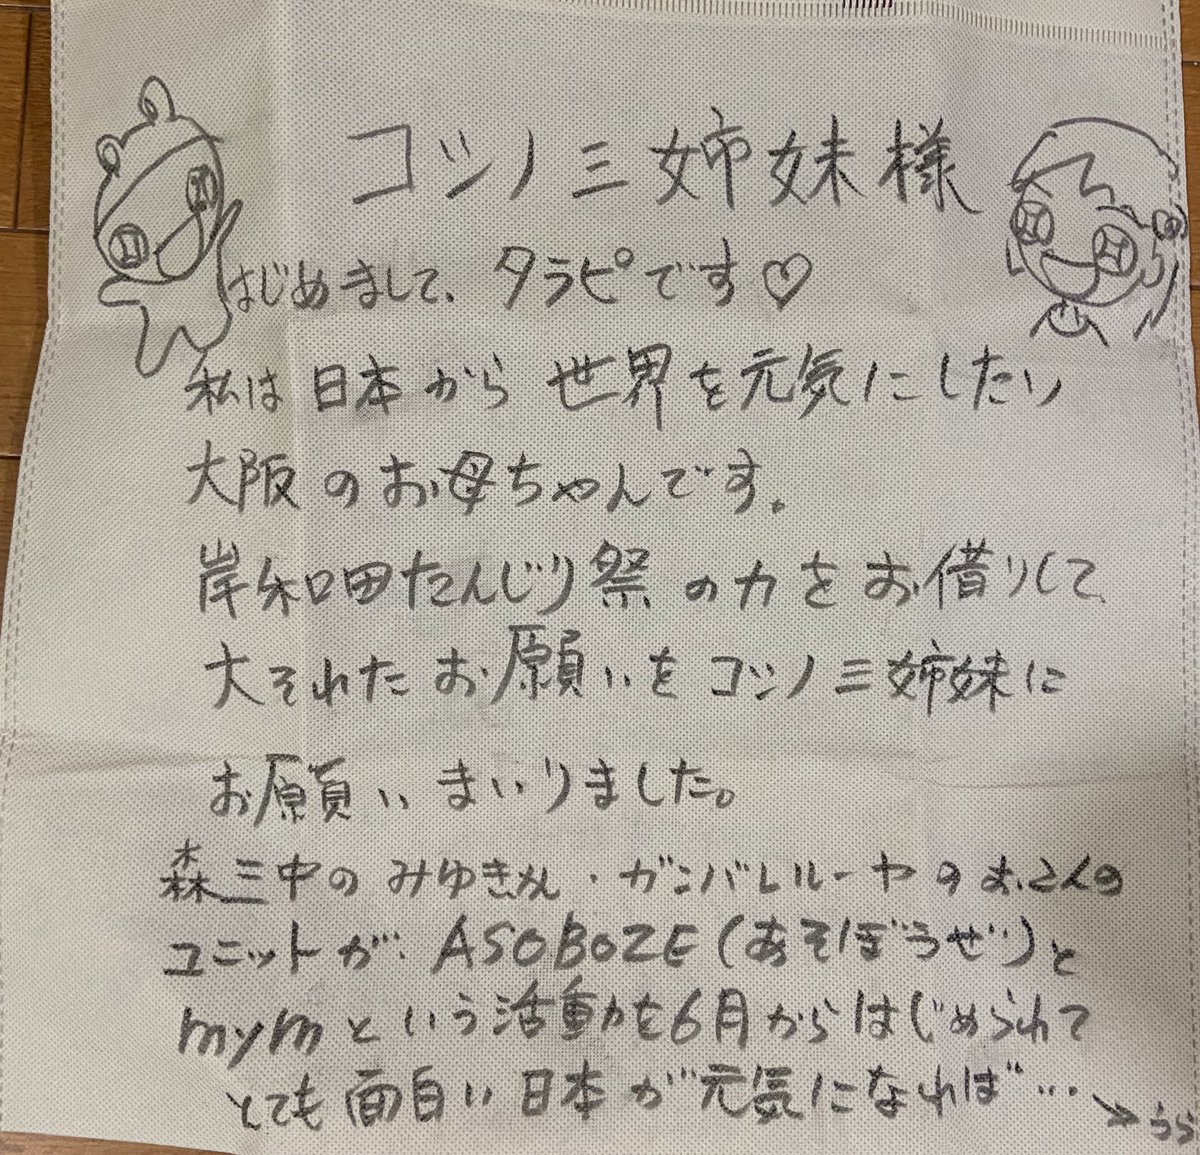 コシノ三姉妹様
はじめまして、タラピです♡
私は日本から世界を元気にしたい
大阪のお母ちゃんです。
岸和田だんじり祭の力をお借りして
大それたお願いをコシノ三姉妹に
お願いまいりました。
森三中のみゆきさん・ガンバレルーヤのよしこさんの
ユニットが ASOBOZE(あそぼうぜ)と
mymという活動を6月からはじめられて
とても面白い日本が元気になれば…
→うら